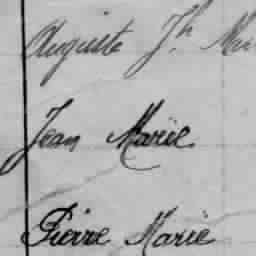 Auguste Jh
Jean Marie
Pierre Marie